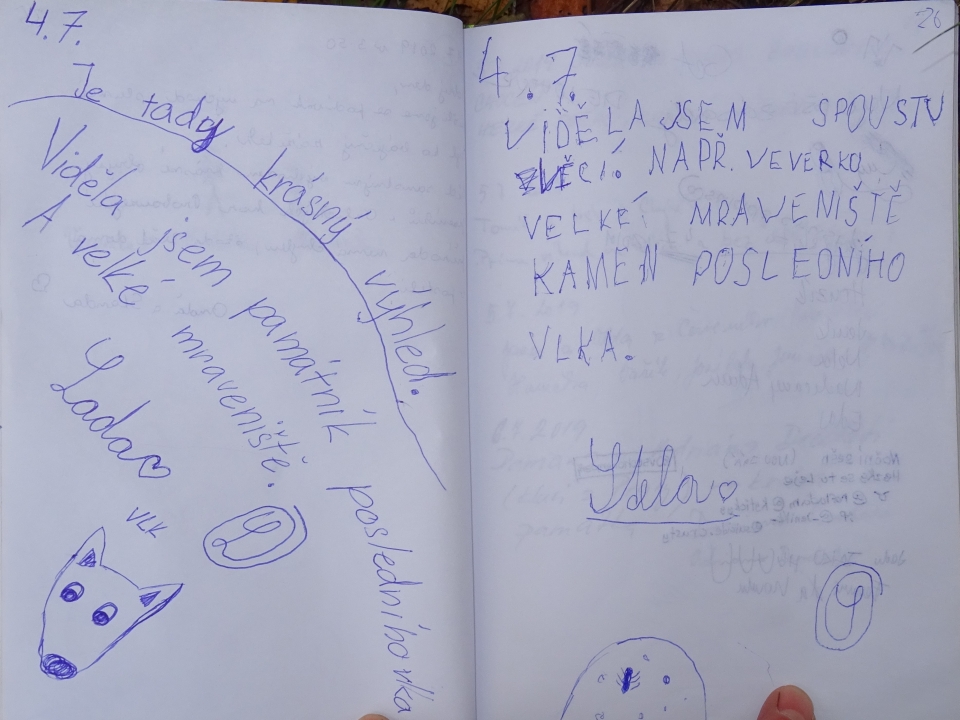 4.7.
Je tady krásný výhled.
Viděla jsem památník posledního vlka
A velké mraveniště.
Lada
VLK
L
26
4.7.
VIDĚLA JSEM SPOUSTU
VĚCÍ. NAPŘ. VEVERKU
VELKÉ MRAVENIŠTĚ
KÁMEN POSLEDNÍHO
VLKA.